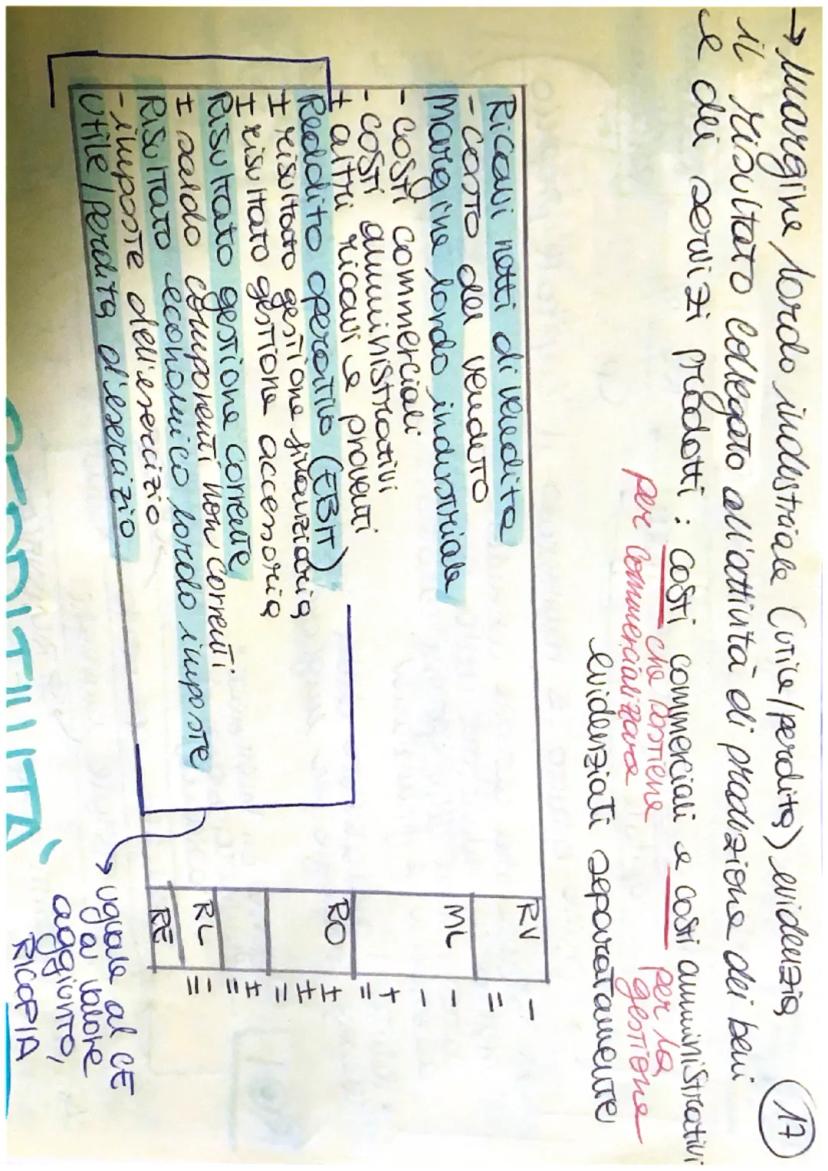 17
→ Margine lordo industriale (utile/perdita) evidenzia
il risultato collegato all'attività di produzione dei beni
e dei servizi prodotti: costi commerciali e costi amministrativi
che sostiene per la
per commercializzare gestione
evidenziati separatamente
Ricavi netti di vendita RV -
- costo del venduto =
Margine lordo industriale ML -
- costi commerciali -
- costi amministrativi +
± altri ricavi e proventi =
Reddito operativo (EBIT) RO ±
± risultato gestione finanziaria ±
± risultato gestione accessoria =
Risultato gestione corrente ±
± saldo componenti non correnti =
Risultato economico lordo imposte RL =
- imposte dell'esercizio
Utile/perdita d'esercizio RE
→ uguale al CE
a valore
aggiunto,
RICOPIA